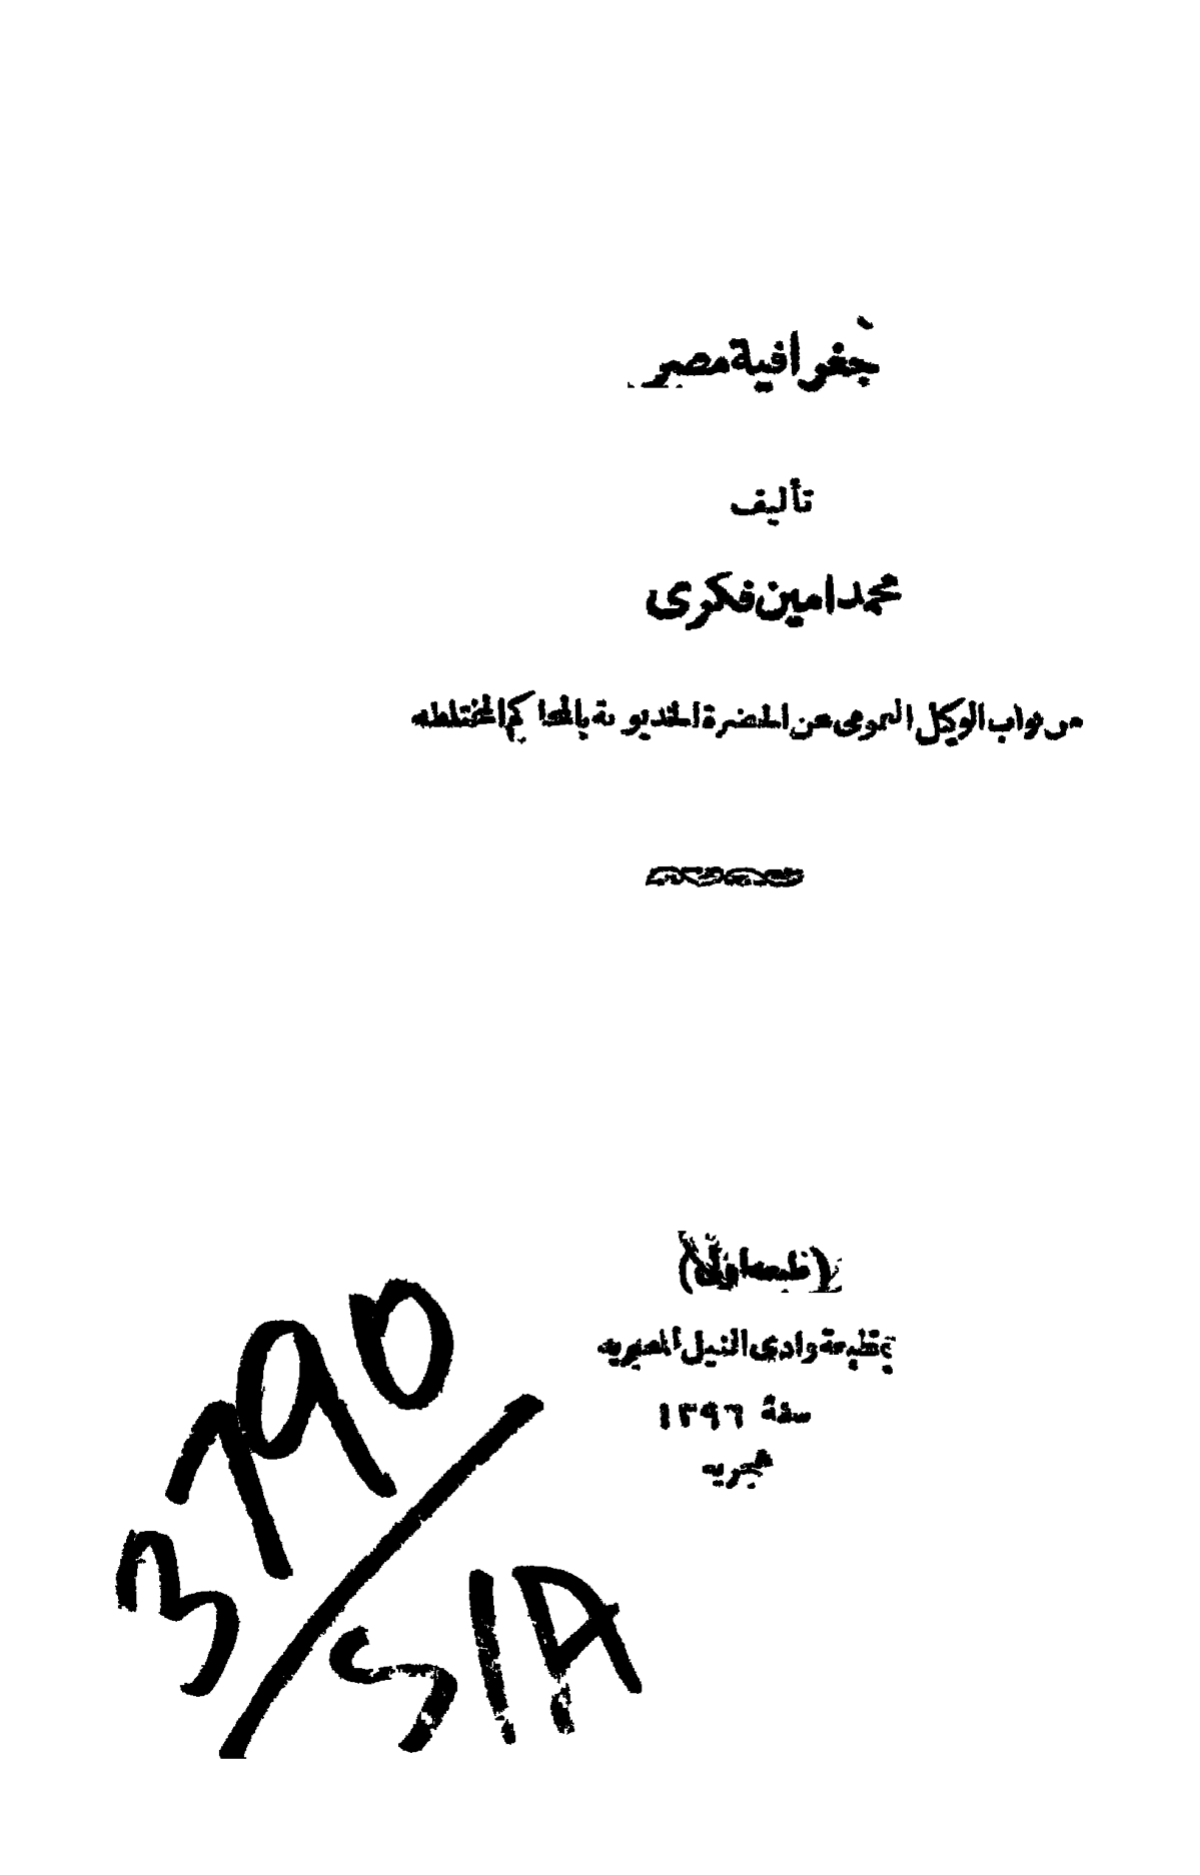 جغرافية مصر
تأليف
محمد امين فكرى
من نواب الوكيل العمومى عن الحضرة الخديوية بالمحاكم المختلطه
(طبعه اولى)
بمطبعة وادى النيل المصريه
سنة ١٢٩٦
هجريه
3790
SIA